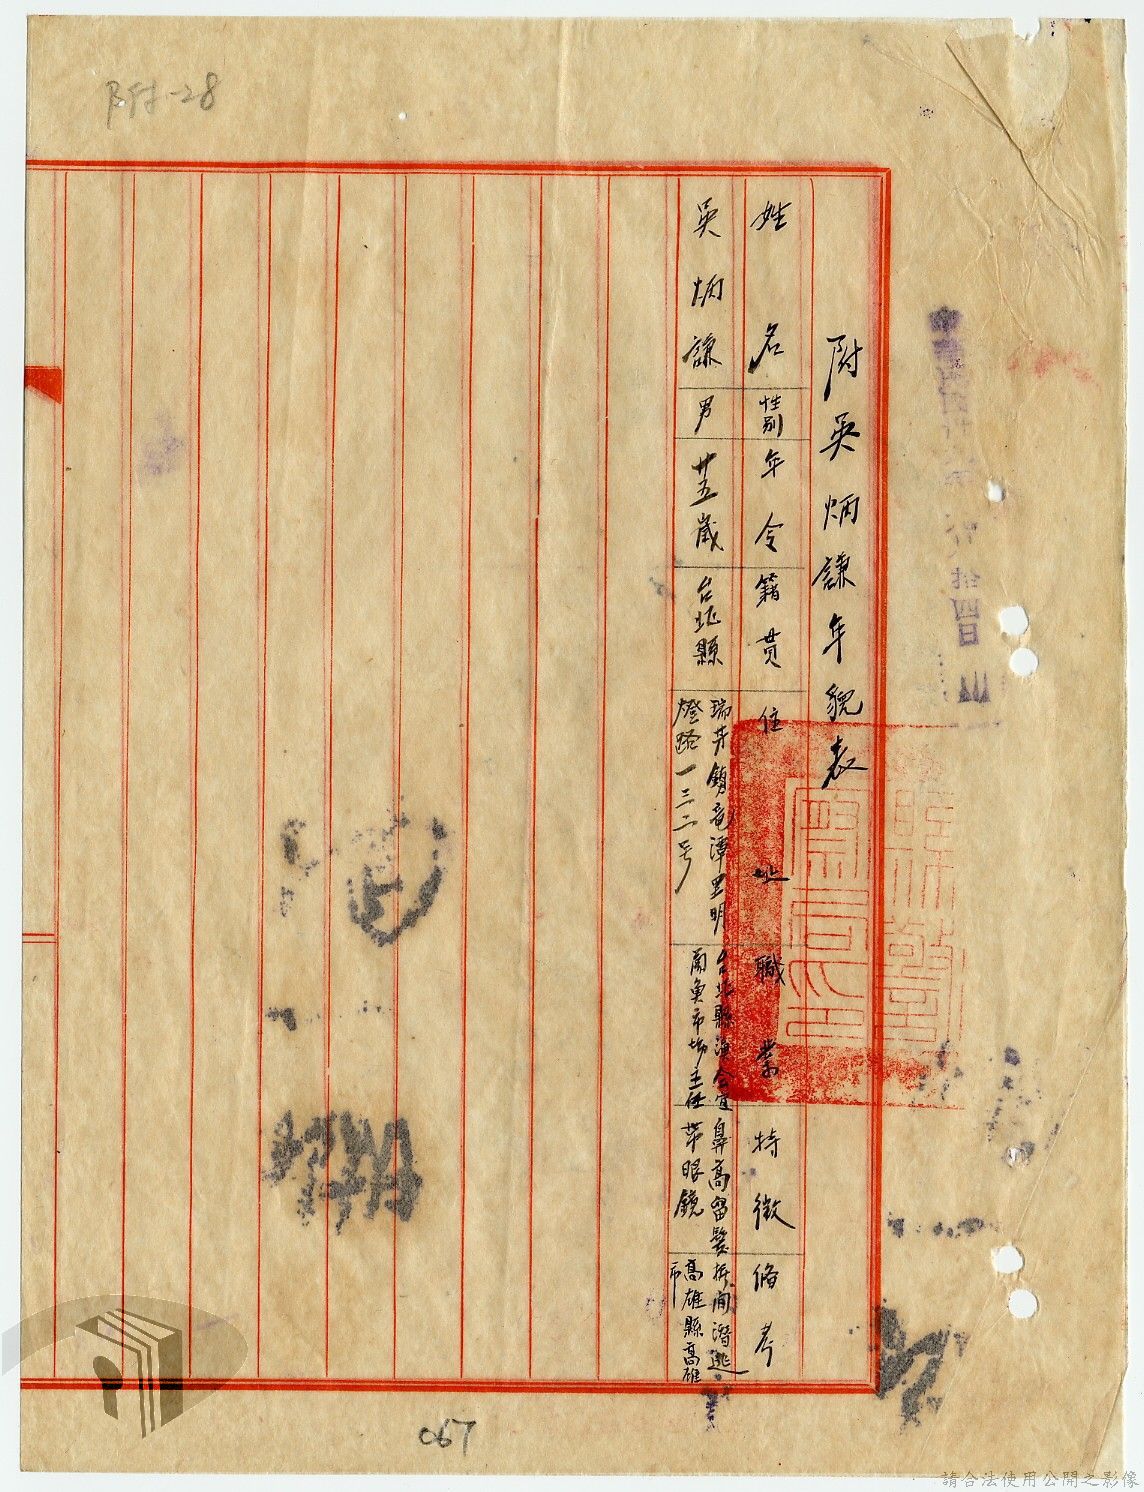 附吳炳謙年貌表
姓名
性別
年令
籍貫
住址
職業
特徵
俻考
吳炳謙
男
廿五歲
台北縣
瑞芳鎮竜潭里明
燈路一三二号
台北縣漁会宜
蘭魚市場主任
鼻高留髮
带眼鏡
拆聞潛逃
高雄縣高雄
市
四日
067
請合法使用公開之影像